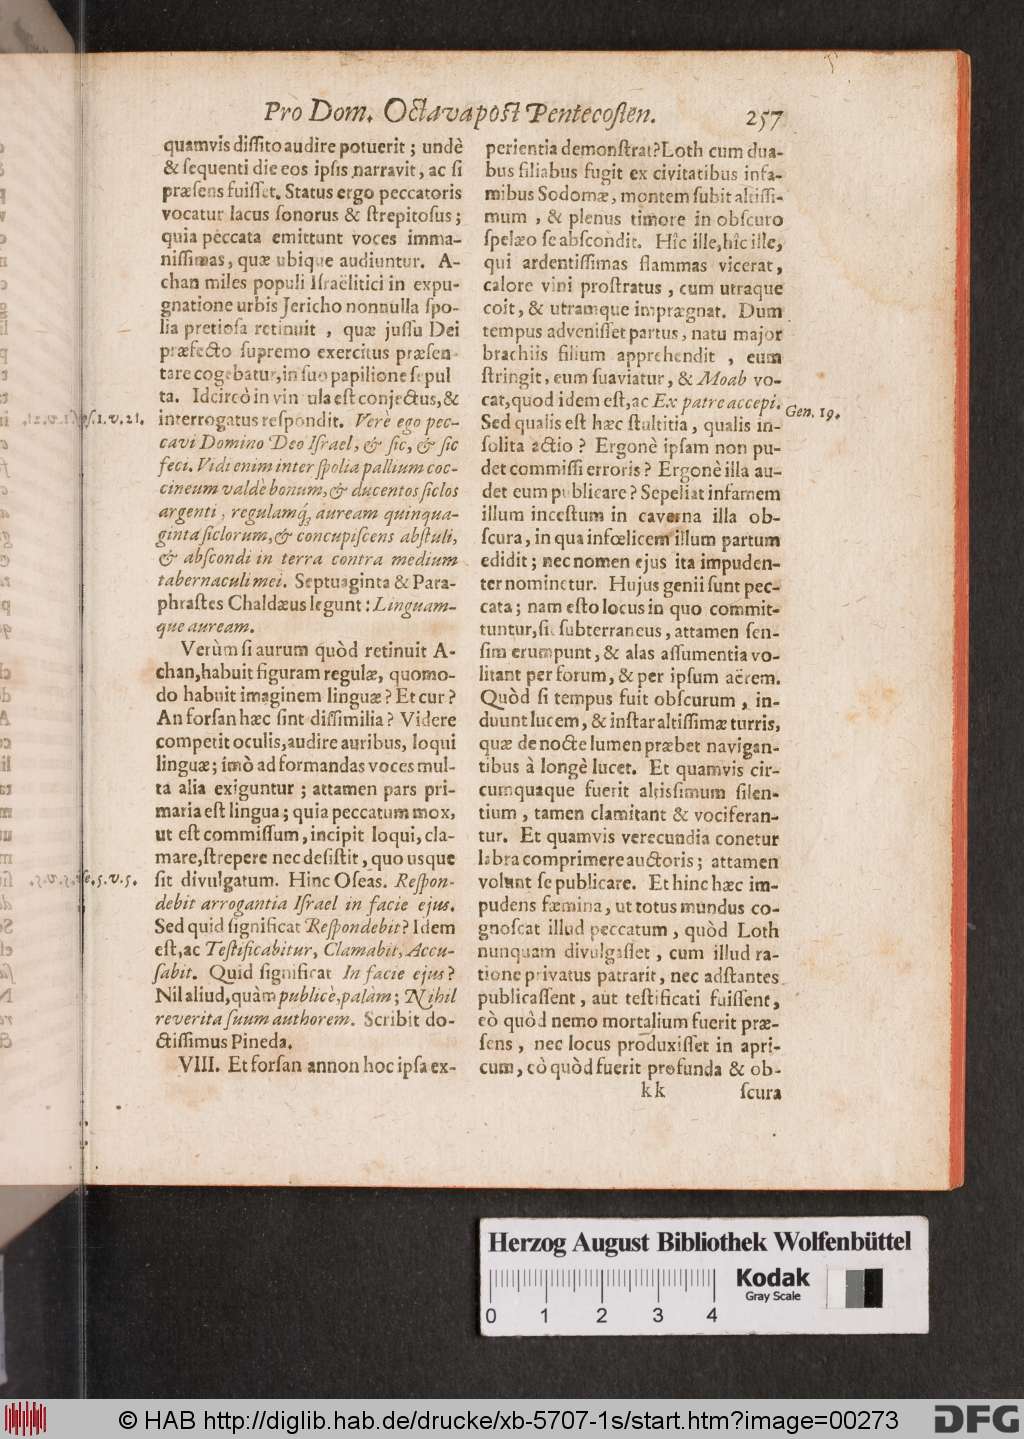 Pro Dom. Octava post Pentecosten. 257
quamvis dissito audire potuerit ; undè
& sequenti die eos ipsis narravit, ac si
præsens fuisset. Status ergo peccatoris
vocatur lacus sonorus & strepitosus ;
quia peccata emittunt voces imma-
nissimas, quæ ubique audiuntur. A-
chan miles populi Israëlitici in expu-
gnatione urbis Jericho nonnulla spo-
lia pretiosa retinuit , quæ jussu Dei
præfecto supremo exercitus præsen-
tare cogebatur, in suo papilione sepul
ta. Idcircò in vin ula est conjectus, &
interrogatus respondit. Verè ego pec-
cavi Domino Deo Israel, & sic, & sic
feci. Vidi enim inter spolia pallium coc-
cineum valdè bonum, & ducentos siclos
argenti , regulamq́; auream quinqua-
ginta siclorum, & concupiscens abstuli,
& abscondi in terra contra medium
tabernaculi mei. Septuaginta & Para-
phrastes Chaldæus legunt : Linguam-
que auream.
Verùm si aurum quòd retinuit A-
chan, habuit figuram regulæ, quomo-
do habuit imaginem linguæ ? Et cur ?
An forsan hæc sint dissimilia ? Videre
competit oculis, audire auribus, loqui
linguæ ; imò ad formandas voces mul-
ta alia exiguntur ; attamen pars pri-
maria est lingua ; quia peccatum mox,
ut est commissum, incipit loqui, cla-
mare, strepere nec desistit, quo usque
sit divulgatum. Hinc Oseas. Respon-
debit arrogantia Israel in facie ejus.
Sed quid significat Respondebit? Idem
est, ac Testificabitur, Clamabit, Accu-
sabit. Quid significat In facie ejus ?
Nil aliud, quàm publicè, palàm ; Nihil
reverita suum authorem. Scribit do-
ctissimus Pineda.
VIII. Et forsan annon hoc ipsa ex-
s. 1. v. 21.
e. 5. v. 5.
perientia demonstrat? Loth cum dua-
bus filiabus fugit ex civitatibus infa-
mibus Sodomæ, montem subit altissi-
mum , & plenus timore in obscuro
spelæo se abscondit. Hîc ille, hîc ille,
qui ardentissimas flammas vicerat,
calore vini prostratus , cum utraque
coit, & utramque imprægnat. Dum
tempus advenisset partus, natu major
brachiis filium apprehendit , eum
stringit, eum suaviatur, & Moab vo-
cat, quod idem est, ac Ex patre accepi.
Sed qualis est hæc stultitia , qualis in-
solita actio ? Ergonè ipsam non pu-
det commissi erroris ? Ergonè illa au-
det eum publicare ? Sepeliat infamem
illum incestum in caverna illa ob-
scura, in qua infœlicem illum partum
edidit ; nec nomen ejus ita impuden-
ter nominetur. Hujus genii sunt pec-
cata ; nam esto locus in quo commit-
tuntur, sit subterraneus , attamen sen-
sim erumpunt, & alas assumentia vo-
litant per forum, & per ipsum aërem.
Quòd si tempus fuit obscurum , in-
duunt lucem, & instar altissimæ turris,
quæ de nocte lumen præbet navigan-
tibus à longè lucet. Et quamvis cir-
cumquaque fuerit altissimum silen-
tium , tamen clamitant & vociferan-
tur. Et quamvis verecundia conetur
labra comprimere auctoris ; attamen
volunt se publicare. Et hinc hæc im-
pudens fœmina, ut totus mundus co-
gnoscat illud peccatum , quòd Loth
nunquam divulgasset , cum illud ra-
tione privatus patrarit, nec adstantes
publicassent , aut testificati fuissent,
eò quòd nemo mortalium fuerit præ-
sens , nec locus produxisset in apri-
cum, eò quòd fuerit profunda & ob-
Gen. 19.
kk scura
Herzog August Bibliothek Wolfenbüttel
0 1 2 3 4
Kodak
Gray Scale
© HAB http://diglib.hab.de/drucke/xb-5707-1s/start.htm?image=00273
DFG